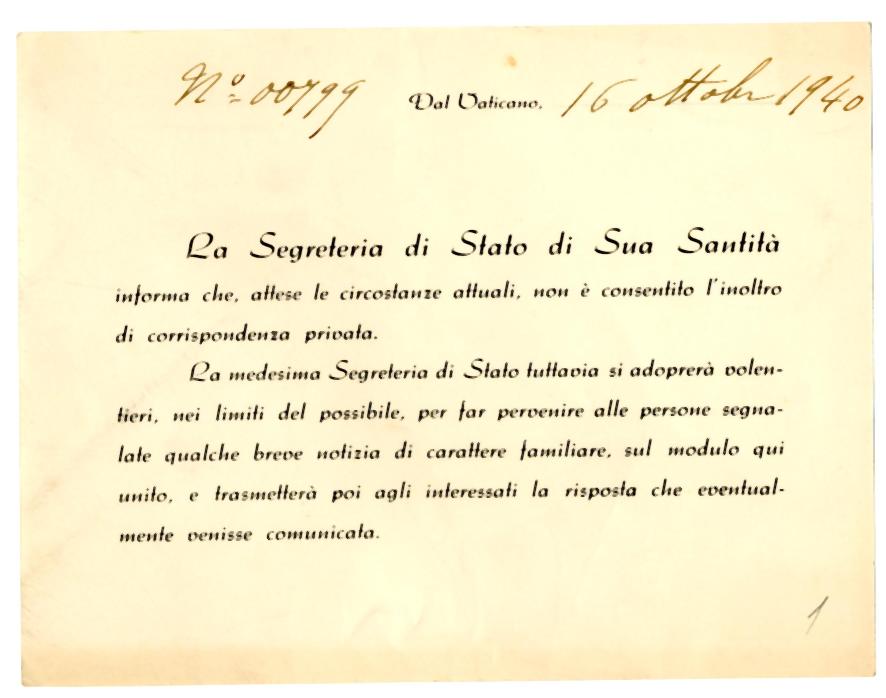 Nº 00799 Dal Vaticano, 16 ottobr 1940
La Segreteria di Stato di Sua Santità
informa che, attese le circostanze attuali, non è consentito l'inoltro
di corrispondenza privata.
La medesima Segreteria di Stato tuttavia si adoprerà volen-
tieri, nei limiti del possibile, per far pervenire alle persone segna-
late qualche breve notizia di carattere familiare, sul modulo qui
unito, e trasmetterà poi agli interessati la risposta che eventual-
mente venisse comunicata.
1